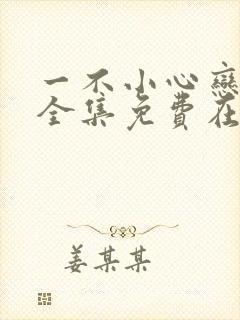 一不小心戀
全集免費在
姜某某